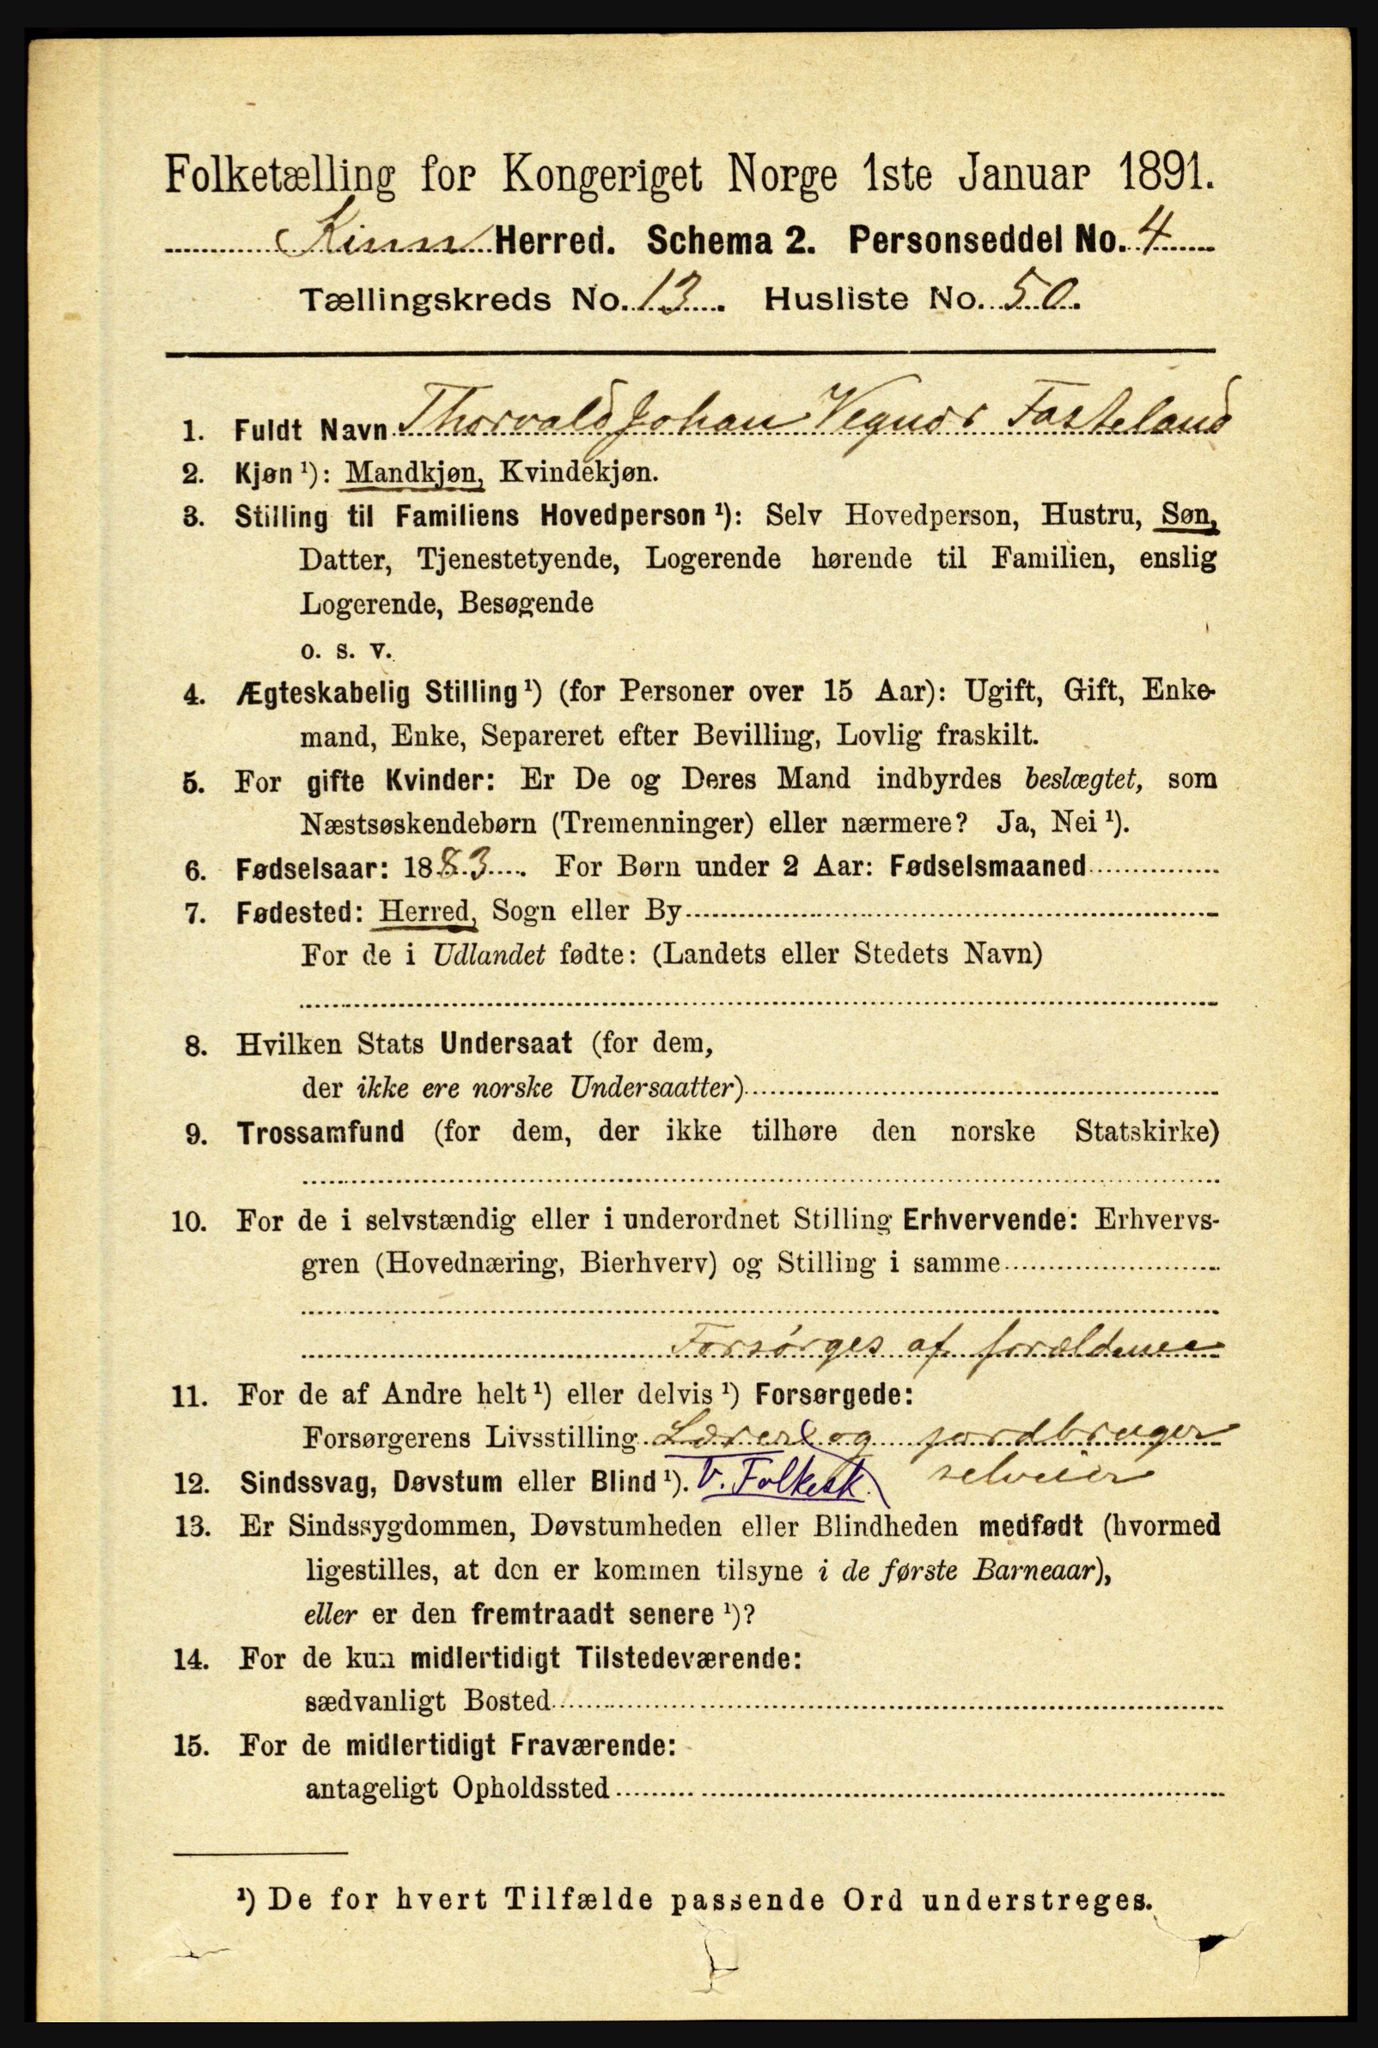 Folketælling for Kongeriget Norge 1ste Januar 1891.
Kinn Herred. Schema 2. Personseddel No. 4
Tællingskreds No. 13. Husliste No. 50.
1. Fuldt Navn Thorvald Johan Vegner Fasteland
2. Kjøn ¹): Mandkjøn, Kvindekjøn.
3. Stilling til Familiens Hovedperson ¹): Selv Hovedperson, Hustru, Søn,
Datter, Tjenestetyende, Logerende hørende til Familien, enslig
Logerende, Besøgende
o. s. v.
4. Ægteskabelig Stilling ¹) (for Personer over 15 Aar): Ugift, Gift, Enke-
mand, Enke, Separeret efter Bevilling, Lovlig fraskilt.
5. For gifte Kvinder: Er De og Deres Mand indbyrdes beslægtet, som
Næstsøskendebørn (Tremenninger) eller nærmere? Ja, Nei ¹).
6. Fødselsaar: 1883. For Børn under 2 Aar: Fødselsmaaned
7. Fødested: Herred, Sogn eller By
For de i Udlandet fødte: (Landets eller Stedets Navn)
8. Hvilken Stats Undersaat (for dem,
der ikke ere norske Undersaatter)
9. Trossamfund (for dem, der ikke tilhøre den norske Statskirke)
10. For de i selvstændig eller i underordnet Stilling Erhvervende: Erhvervs-
gren (Hovednæring, Bierhverv) og Stilling i samme
Forsørges af forældrene
11. For de af Andre helt ¹) eller delvis ¹) Forsørgede:
Forsørgerens Livsstilling Lærer og jordbruger
12. Sindssvag, Døvstum eller Blind ¹). v. Folkesk. selveier
13. Er Sindssygdommen, Døvstumheden eller Blindheden medfødt (hvormed
ligestilles, at den er kommen tilsyne i de første Barneaar),
eller er den fremtraadt senere ¹)?
14. For de kun midlertidigt Tilstedeværende:
sædvanligt Bosted
15. For de midlertidigt Fraværende:
antageligt Opholdssted
¹) De for hvert Tilfælde passende Ord understreges.